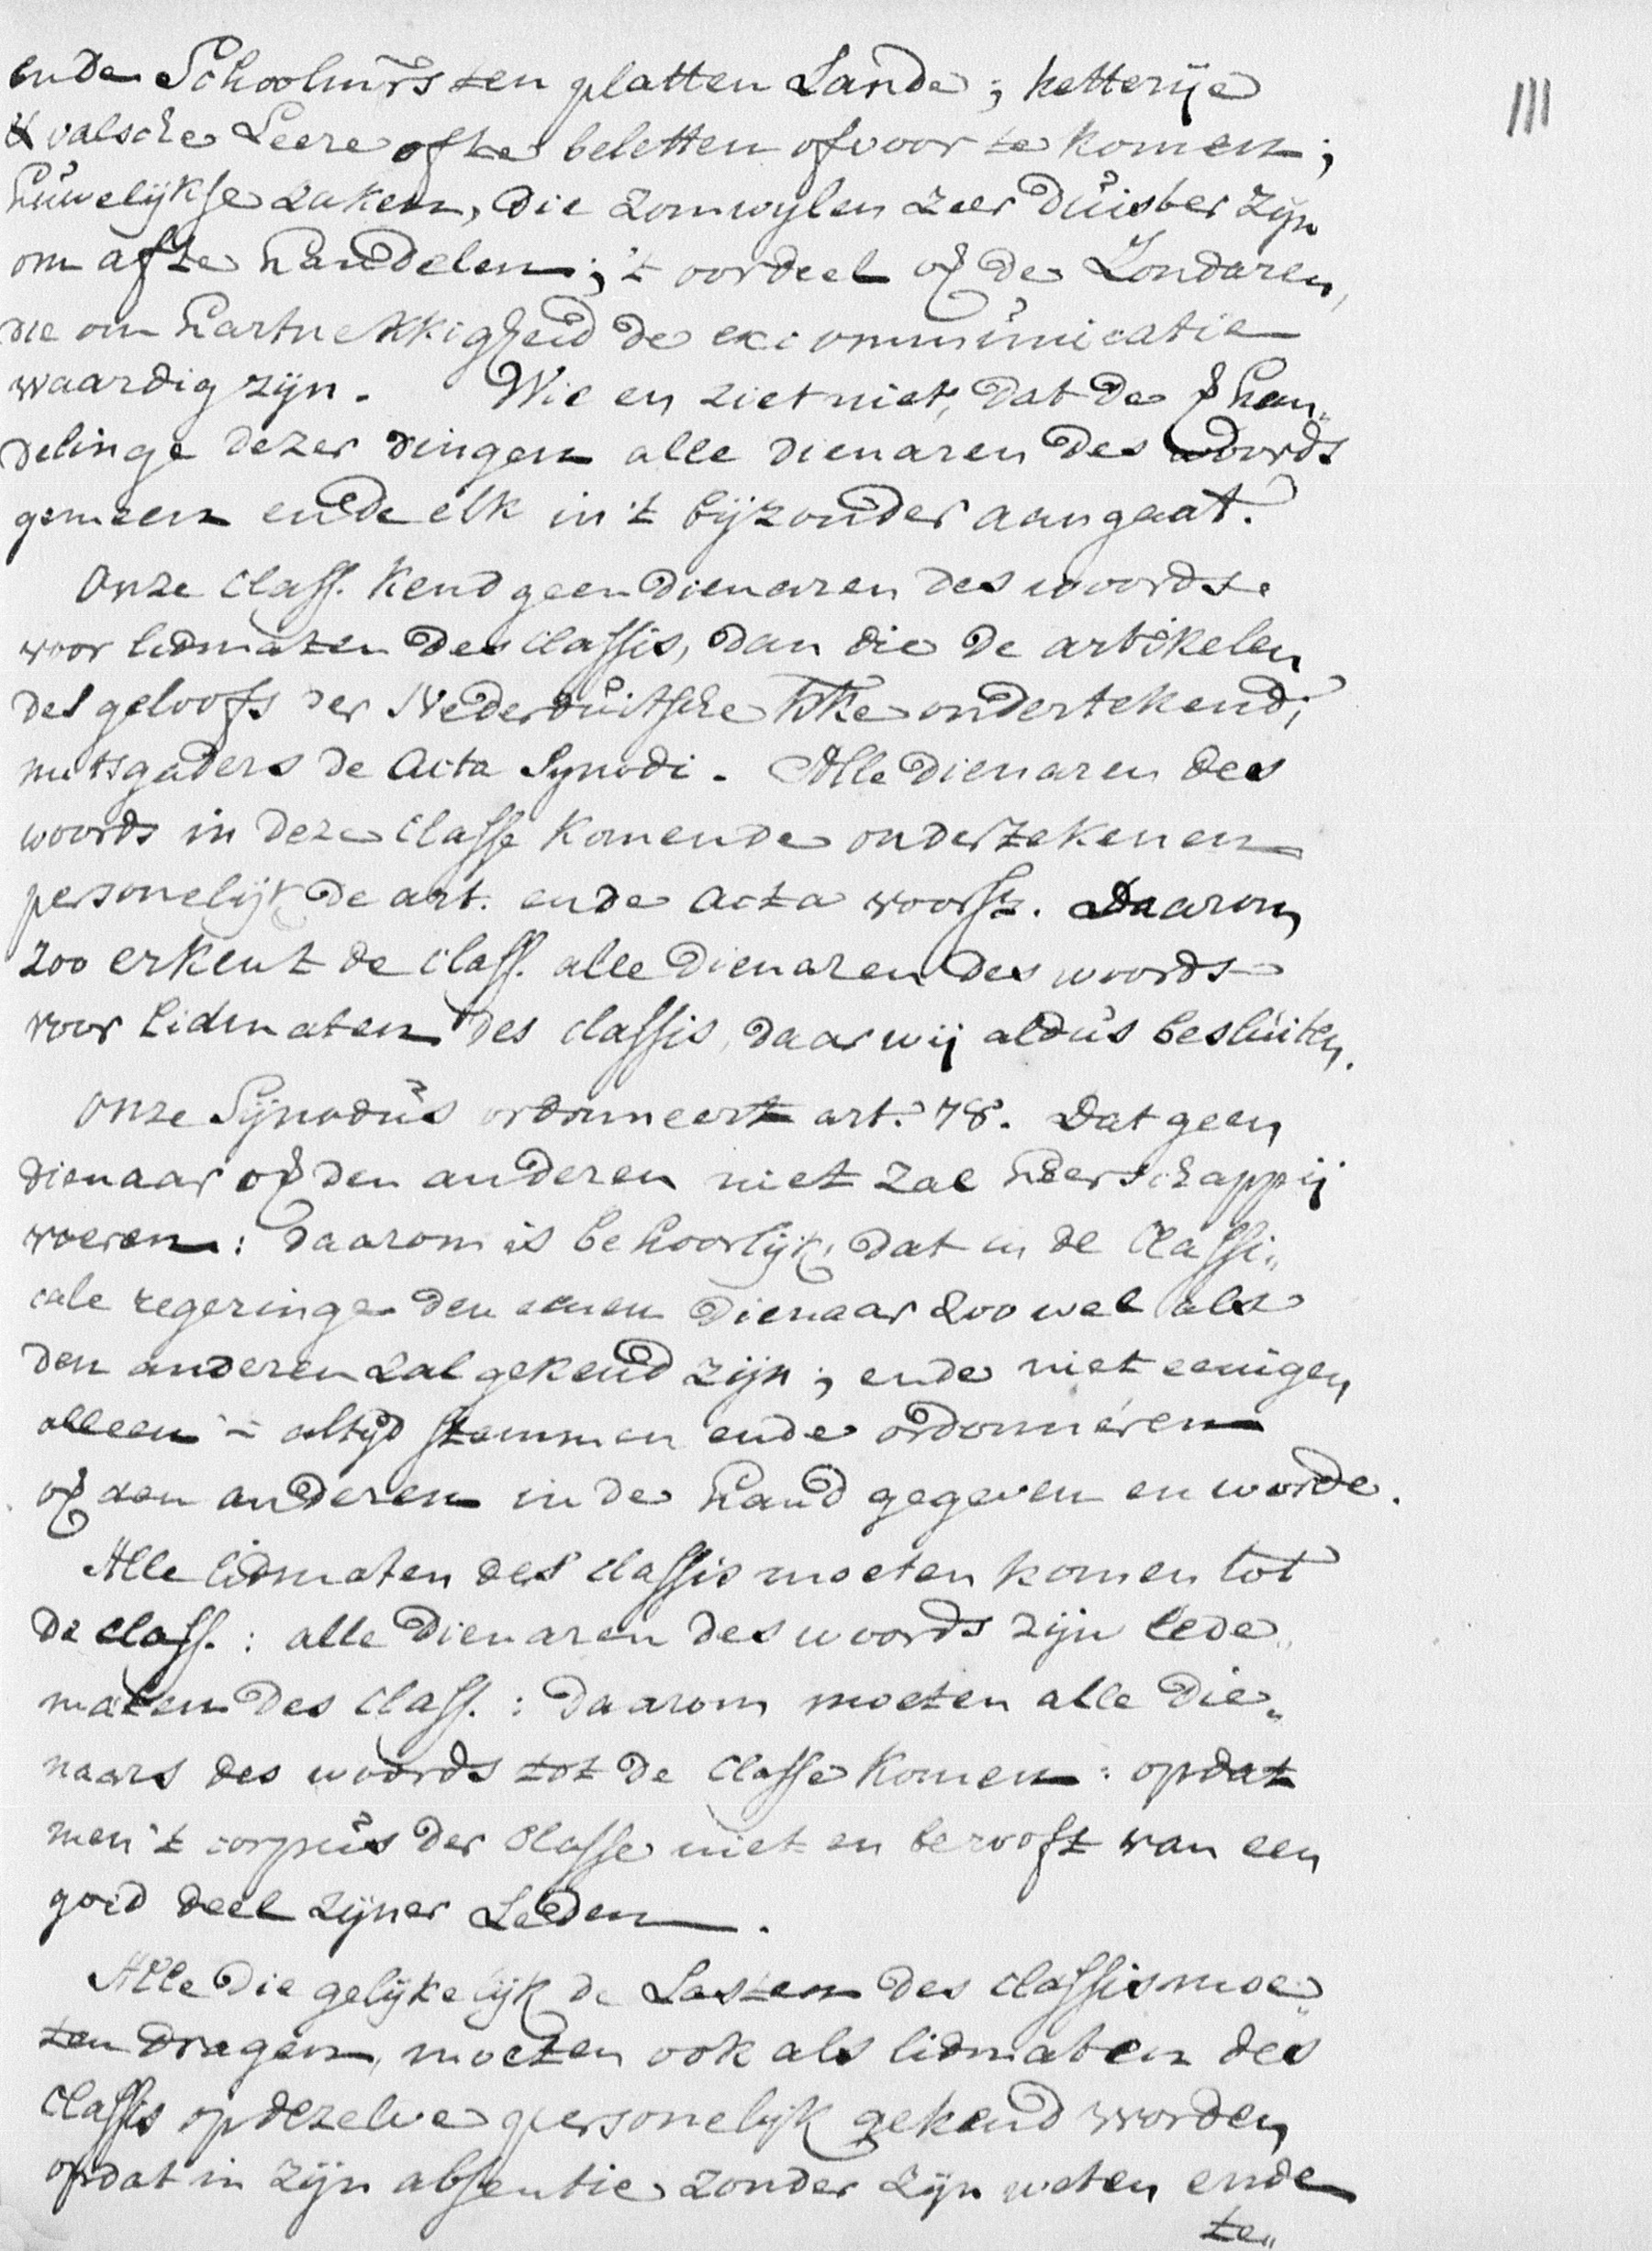 111
ende Schoolmrs ten platten Lande; ketterije
& valsche Leere ofte beletten of voor te komen;
huwelijkse zaken, die zomwylen zeer duister zijn
om af te handelen; 't oordeel of de Zondaren,
die om hartnekkigheid de excommunicatie
waardig zijn. Wie en ziet niet, dat de han„
delinge dezer dingen alle dienaren des woords
gemeen ende elk in 't bijzonder aangaat.
Onze Class. kend geen dienaren des woords
voor lidmaten des Classis, dan die de artikelen
des geloofs der Nederduitsche kke ondertekend;
mitsgaders de Acta Synodi. Alle dienaren des
woords in deze Classe komende onderzekenen
personelijk de art. ende acta voorsz. Daarom
zoo erkent de Class. alle dienaren des woords
voor Lidmaten des Classis, daar wij aldus besluiten.
Onze Synodus ordonneert art. 78. Dat geen
dienaar op den anderen niet zal heerschappij
voeren: daarom is behoorlijk, dat in de Classi„
cale regeringe den eenen Dienaar zoo wel als
den anderen zal gekend zijn; ende niet eenigen
alleen altijd stemmen ende ordonnéren
op den anderen in de hand gegeven en worde.
Alle lidmaten des Classis moeten komen tot
de Class.: alle Dienaren des woords zijn lede„
maten des Class.: daarom moeten alle Die„
naars des woords tot de Classe komen: opdat
men 't corpus der Classe niet en berooft van een
goed deel zijner Leden.
Alle die gelijkelijk de Lasten des Classis moe„
ten dragen, moeten ook als lidmaten des
Classis op dezelve personelijk gekend worden,
opdat in zijn absentie zonder zijn weten ende
te„